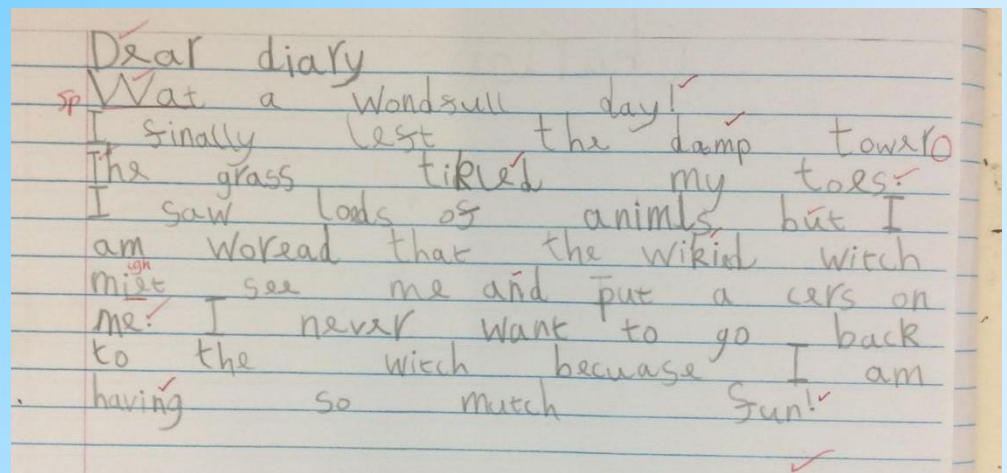 Dear diary
sp Wat a wondfull day!
I finally left the damp tower
The grass tikled my toes.
I saw loads of animls but I
am woread that the wikid witch
igh
miet see me and put a cers on
me. I never want to go back
to the witch becuase I am
having so mutch fun!